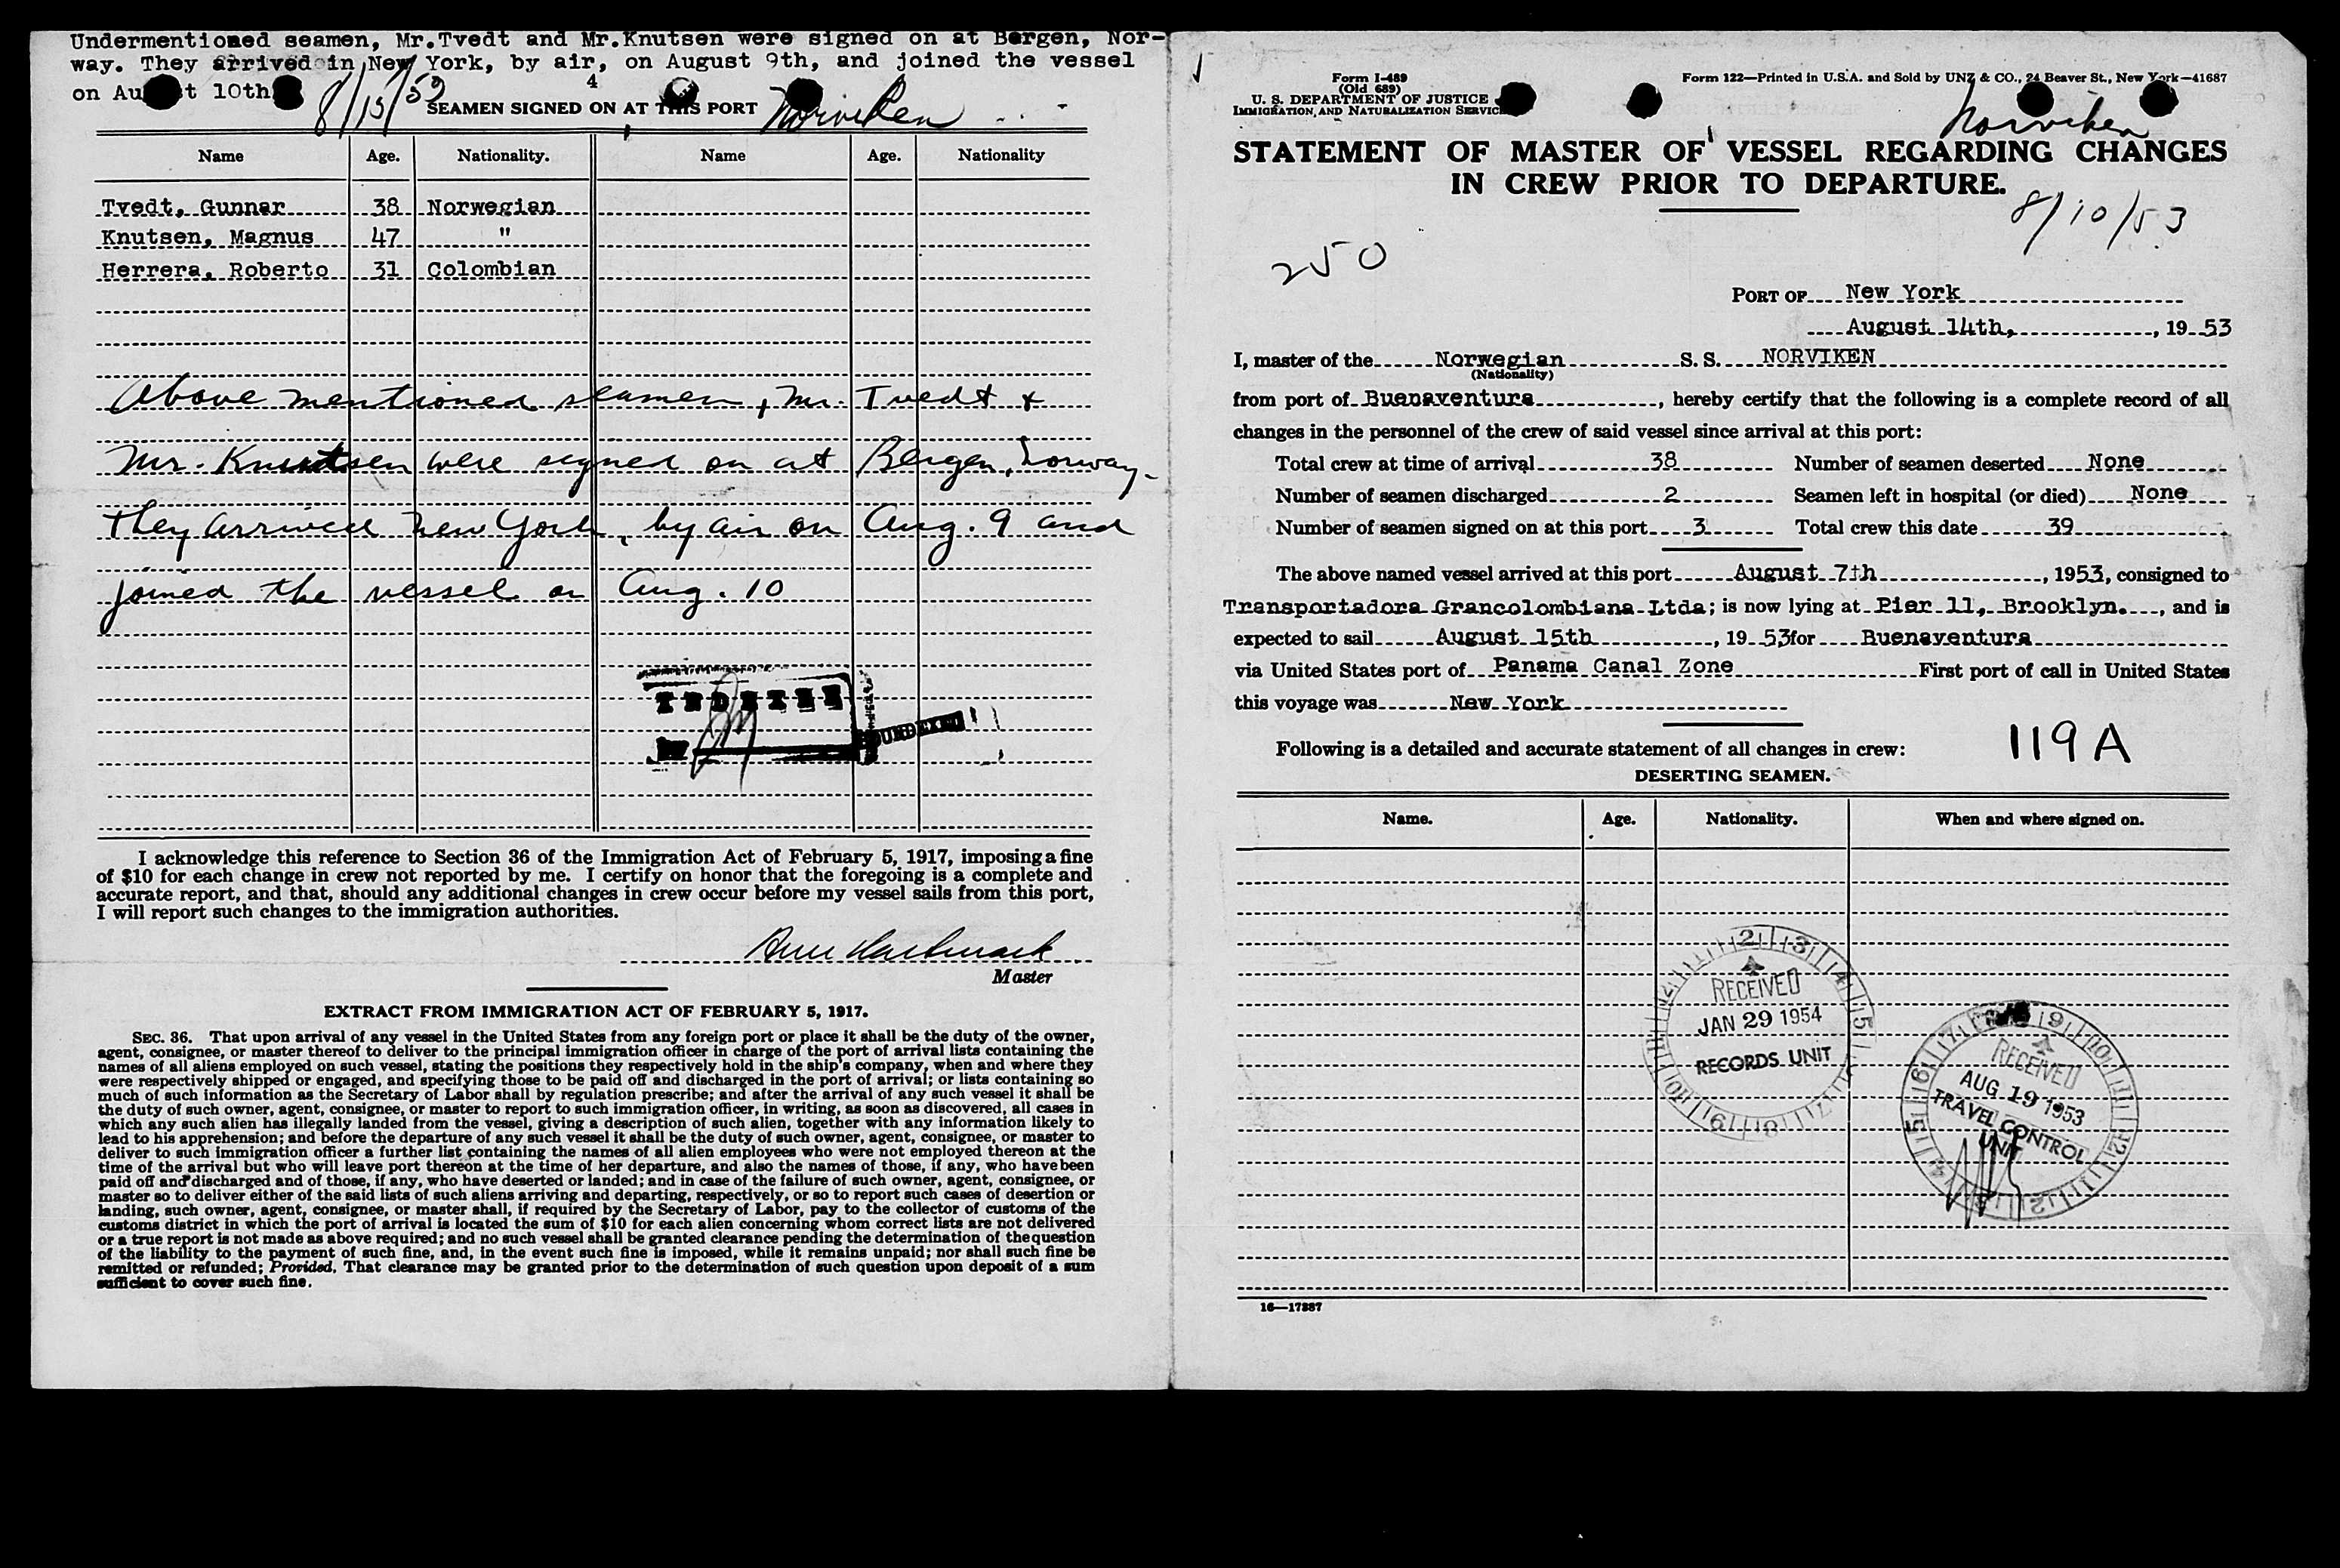 Undermentioned seamen, Mr.Tvedt and Mr.Knutsen were signed on at Bergen, Nor-
way. They arrived in New York, by air, on August 9th, and joined the vessel
on Au t 10th
4
8/15/53
SEAMEN SIGNED ON AT THIS PORT
Norviken
Name Age. Nationality. Name Age. Nationality
Tvedt, Gunnar 38 Norwegian
Knutsen, Magnus 47 "
Herrera, Roberto 31 Colombian
Above mentioned seamen, Mr. Tvedt &
Mr. Knutsen were signed on at Bergen, Norway-
they arrived New York, by air on Aug. 9 and
joined the vessel on Aug. 10
UNDEXED
I acknowledge this reference to Section 36 of the Immigration Act of February 5, 1917, imposing a fine
of $10 for each change in crew not reported by me. I certify on honor that the foregoing is a complete and
accurate report, and that, should any additional changes in crew occur before my vessel sails from this port,
I will report such changes to the immigration authorities.
Master
EXTRACT FROM IMMIGRATION ACT OF FEBRUARY 5, 1917.
SEC. 36. That upon arrival of any vessel in the United States from any foreign port or place it shall be the duty of the owner,
agent, consignee, or master thereof to deliver to the principal immigration officer in charge of the port of arrival lists containing the
names of all aliens employed on such vessel, stating the positions they respectively hold in the ship's company, when and where they
were respectively shipped or engaged, and specifying those to be paid off and discharged in the port of arrival; or lists containing so
much of such information as the Secretary of Labor shall by regulation prescribe; and after the arrival of any such vessel it shall be
the duty of such owner, agent, consignee, or master to report to such immigration officer, in writing, as soon as discovered, all cases in
which any such alien has illegally landed from the vessel, giving a description of such alien, together with any information likely to
lead to his apprehension; and before the departure of any such vessel it shall be the duty of such owner, agent, consignee, or master to
deliver to such immigration officer a further list containing the names of all alien employees who were not employed thereon at the
time of the arrival but who will leave port thereon at the time of her departure, and also the names of those, if any, who have been
paid off and discharged and of those, if any, who have deserted or landed; and in case of the failure of such owner, agent, consignee, or
master so to deliver either of the said lists of such aliens arriving and departing, respectively, or so to report such cases of desertion or
landing, such owner, agent, consignee, or master shall, if required by the Secretary of Labor, pay to the collector of customs of the
customs district in which the port of arrival is located the sum of $10 for each alien concerning whom correct lists are not delivered
or a true report is not made as above required; and no such vessel shall be granted clearance pending the determination of the question
of the liability to the payment of such fine, and, in the event such fine is imposed, while it remains unpaid; nor shall such fine be
remitted or refunded; Provided, That clearance may be granted prior to the determination of such question upon deposit of a sum
sufficient to cover such fine.
Form I-489
(Old 689)
U. S. DEPARTMENT OF JUSTICE
IMMIGRATION AND NATURALIZATION SERVICE
Form 122—Printed in U.S.A. and Sold by UNZ & CO., 24 Beaver St., New York—41687
Norviken
STATEMENT OF MASTER OF VESSEL REGARDING CHANGES
IN CREW PRIOR TO DEPARTURE.
8/10/53
250
PORT OF New York
August 14th, , 19 53
I, master of the Norwegian S. S. NORVIKEN
(Nationality)
from port of Buenaventura , hereby certify that the following is a complete record of all
changes in the personnel of the crew of said vessel since arrival at this port:
Total crew at time of arrival 38 Number of seamen deserted None
Number of seamen discharged 2 Seamen left in hospital (or died) None
Number of seamen signed on at this port 3 Total crew this date 39
The above named vessel arrived at this port August 7th , 1953, consigned to
Transportadora Grancolombiana Ltda; is now lying at Pier 11, Brooklyn. , and is
expected to sail August 15th , 19 53 for Buenaventura
via United States port of Panama Canal Zone First port of call in United States
this voyage was New York
Following is a detailed and accurate statement of all changes in crew:
119A
DESERTING SEAMEN.
Name. Age. Nationality. When and where signed on.
RECEIVED
JAN 29 1954
RECORDS UNIT
RECEIVED
AUG 19 1953
TRAVEL CONTROL
UNIT
16—17387